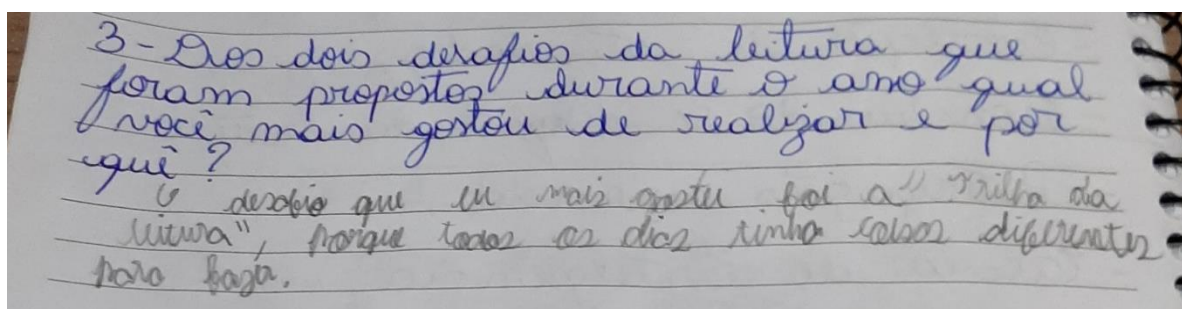 3- Dos dois desafios da leitura que
foram propostos durante o ano qual
você mais gostou de realizar e por
quê?
O desafio que eu mais gostei foi a "Trilha da
leitura", porque todos os dias tinha coisas diferentes
para fazer.